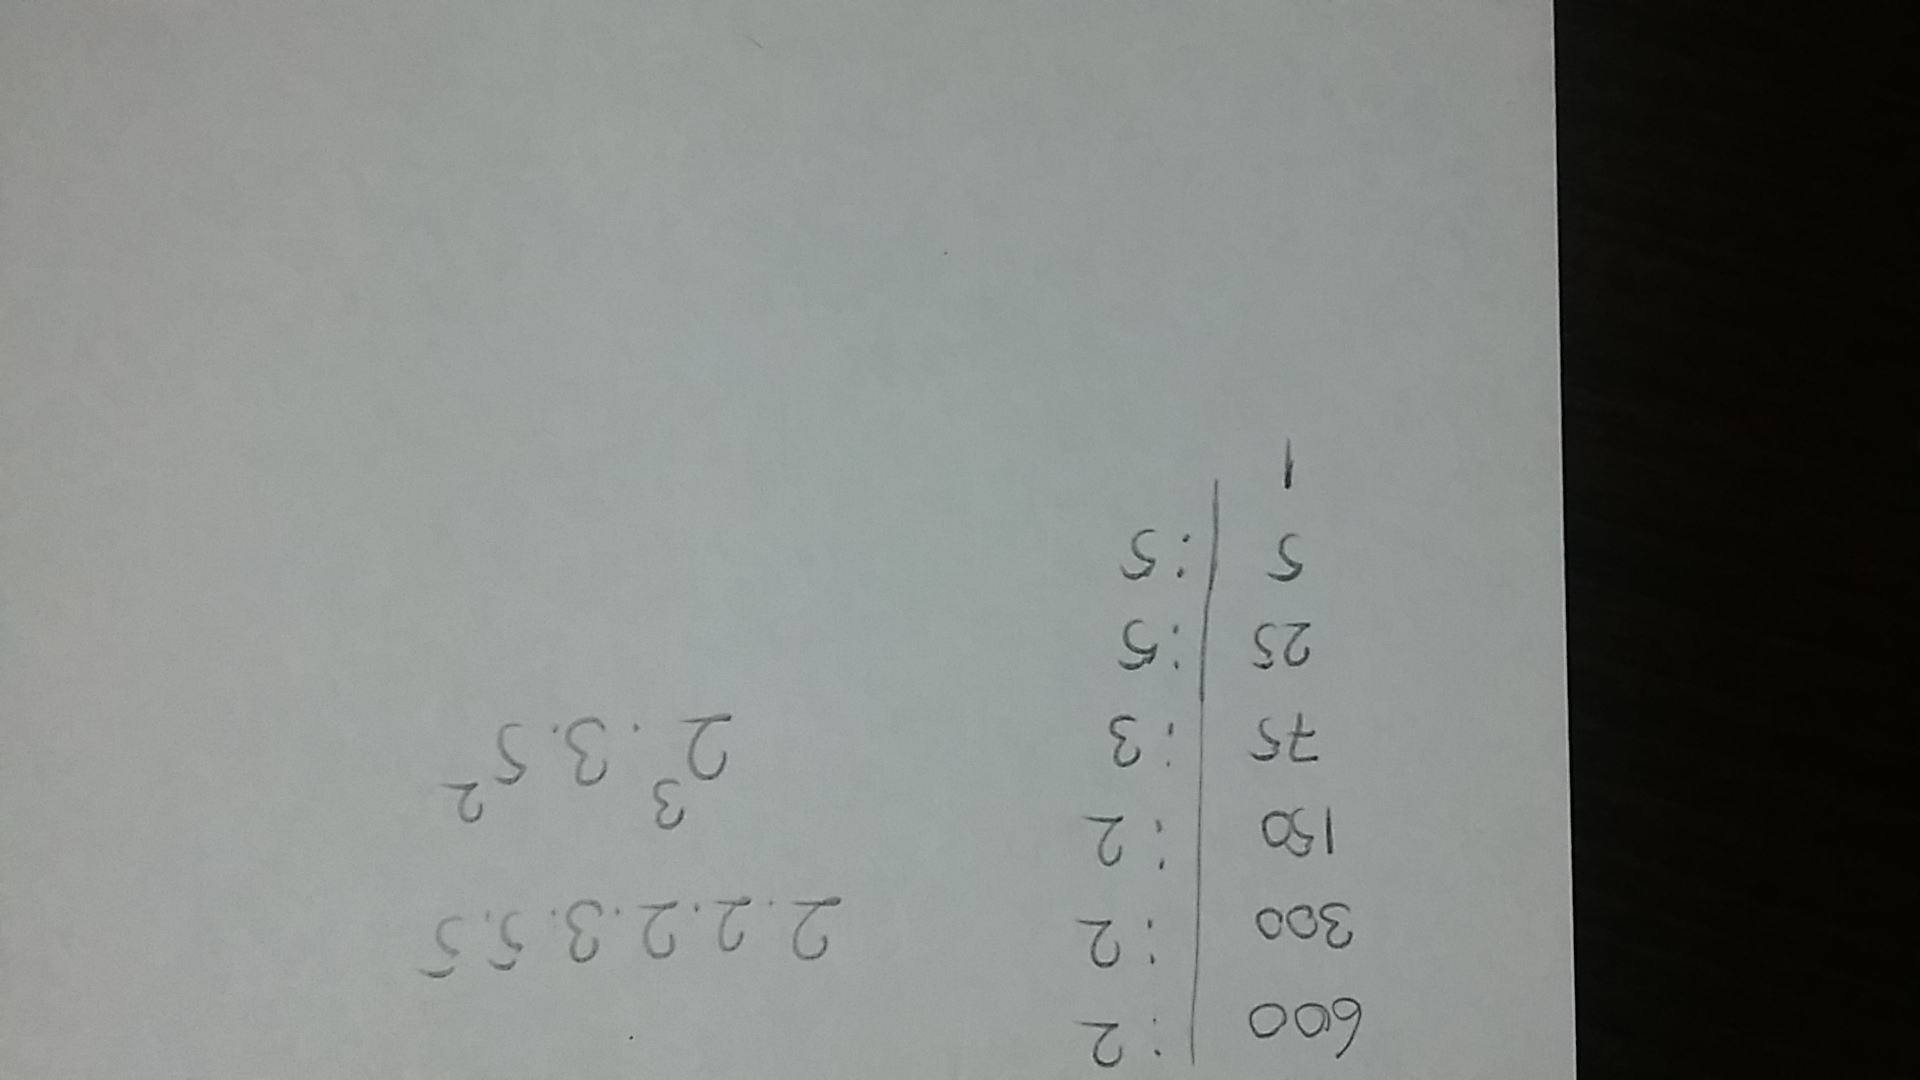 600 | :2
300 | :2
150 | :2
75 | :3
25 | :5
5 | :5
1
2.2.2.3.5.5
2³.3.5²